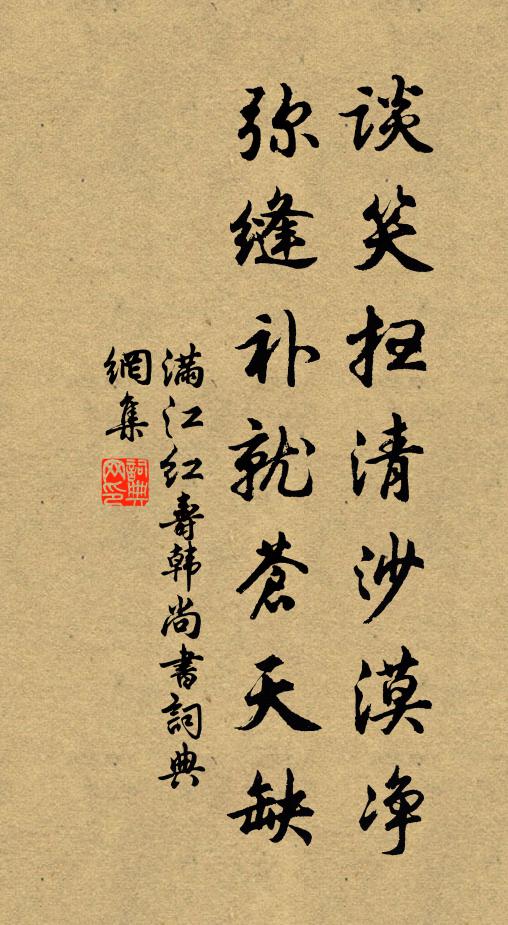 谈笑扫清沙漠净
弥缝补就苍天缺
满江红寿韩尚书詞典
網集
詞典网印